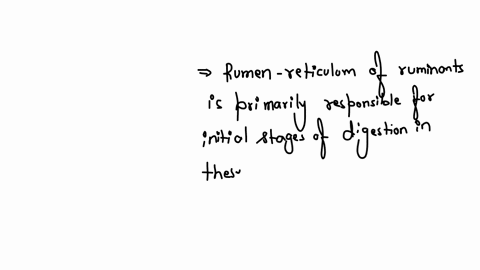 ⇒ Rumen-reticulum of ruminants
is primarily responsible for
initial stages of digestion in
thes